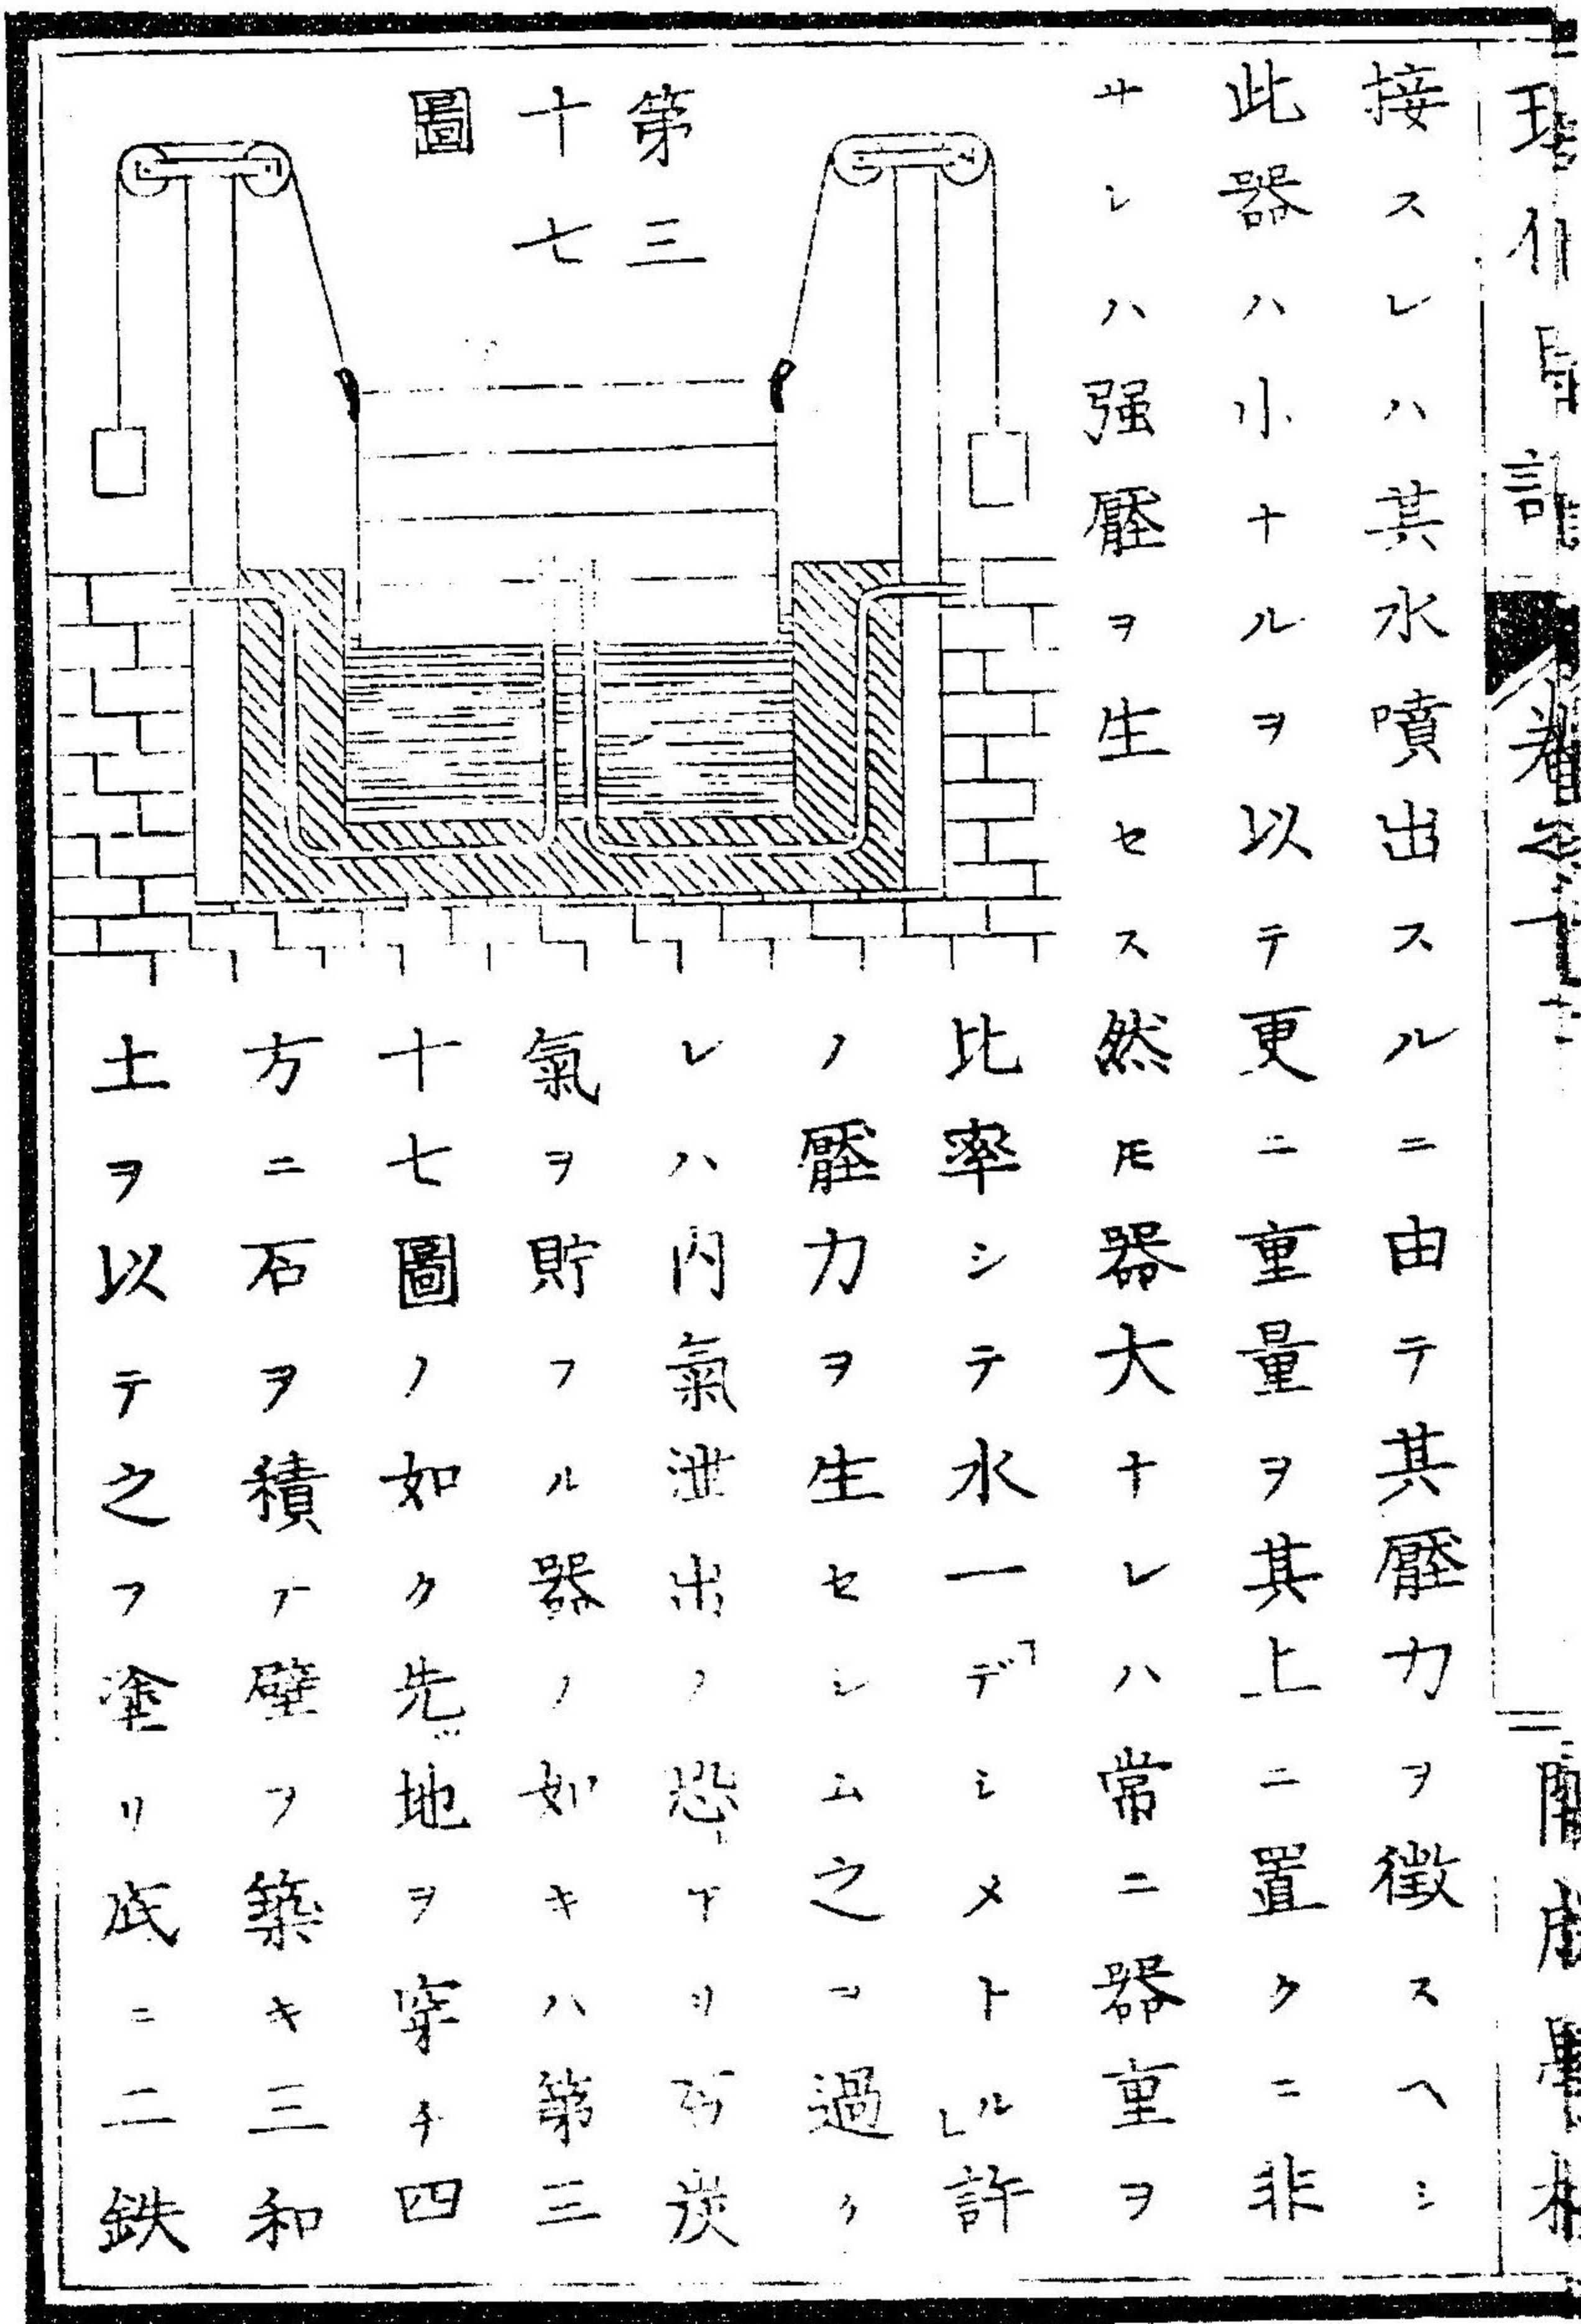 接スレハ其水噴出スルニ由テ其壓力ヲ徴スヘシ
此器ハ小ナルヲ以テ更ニ重量ヲ其上ニ置クニ非
サレハ强壓ヲ生セス然𪜈器大ナレハ常ニ器重ヲ
比率シテ水一デシメトル許
ノ壓力ヲ生セシム之ヿ過ク
レハ内氣泄出ノ恐アリ石炭
氣ヲ貯フル器ノ如キハ第三
十七圖ノ如ク先ヅ地ヲ穿チ四
方ニ石ヲ積テ壁ヲ築キ三和
土ヲ以テ之ヲ塗リ底ニ二鉄
第三
十七
圖